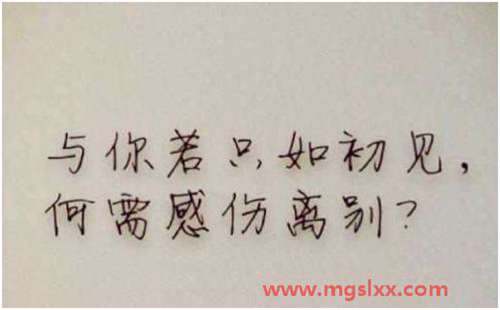 与你若只如初见,
何需感伤离别?
www.mgslxx.com